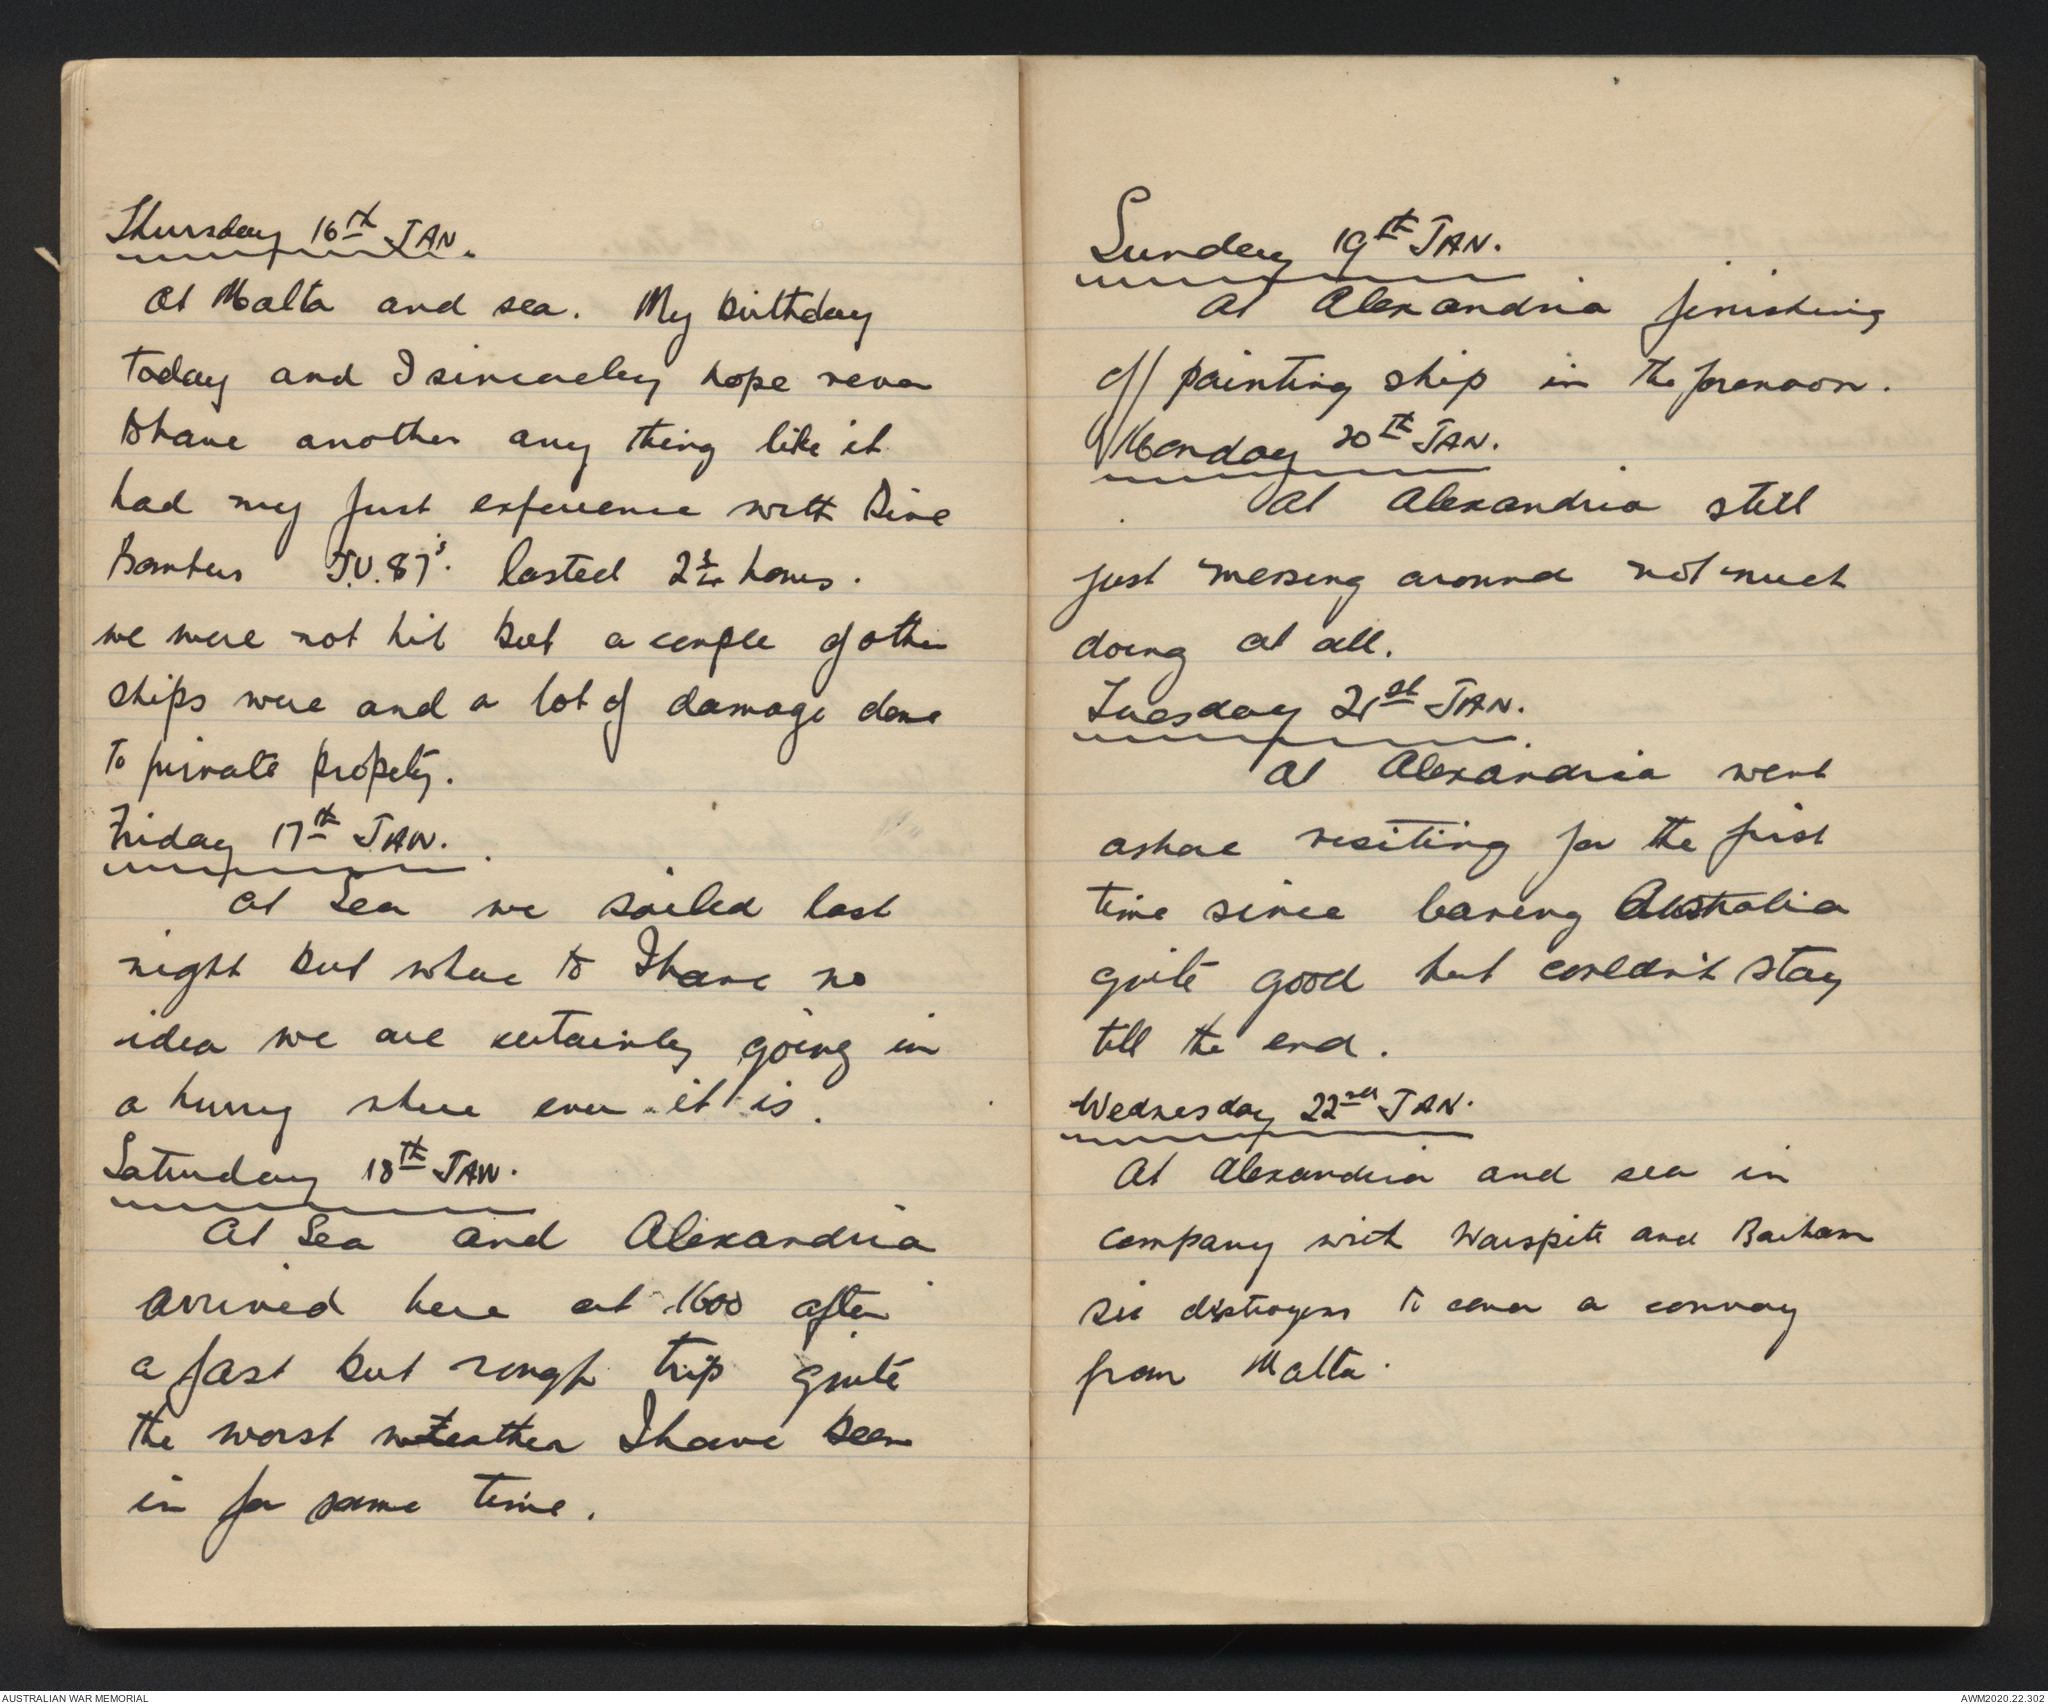 Thursday 16th JAN.
At Malta and sea. My birthday
today and I sincereley hope never
to have another any thing like it
had my first experience with Dive
Bombers J.U.87's. lasted 2¾ hours.
we were not hit but a couple of other
ships were and a lot of damage done
to private propety.
Friday 17th JAN.
At Sea we sailed last
night but where to I have no
idea we are certainly going in
a hurry where ever it is.
Saturday 18th JAN.
At Sea and Alexandria
arrived here at 1600 after
a fast but rough trip quite
the worst weather I have been
in for some time.
Sunday 19th JAN.
At Alexandria finishing
off painting ship in the forenoon.
Monday 20th JAN.
At Alexandria still
just messing around not much
doing at all.
Tuesday 21st JAN.
At Alexandria went
ashore visiting for the first
time since leaving Australia
quite good but couldn't stay
till the end.
Wednesday 22nd JAN.
At Alexandria and sea in
company with Warspite and Barham
six distroyers to cover a convoy
from Malta.
AUSTRALIAN WAR MEMORIAL
AWM2020.22.302